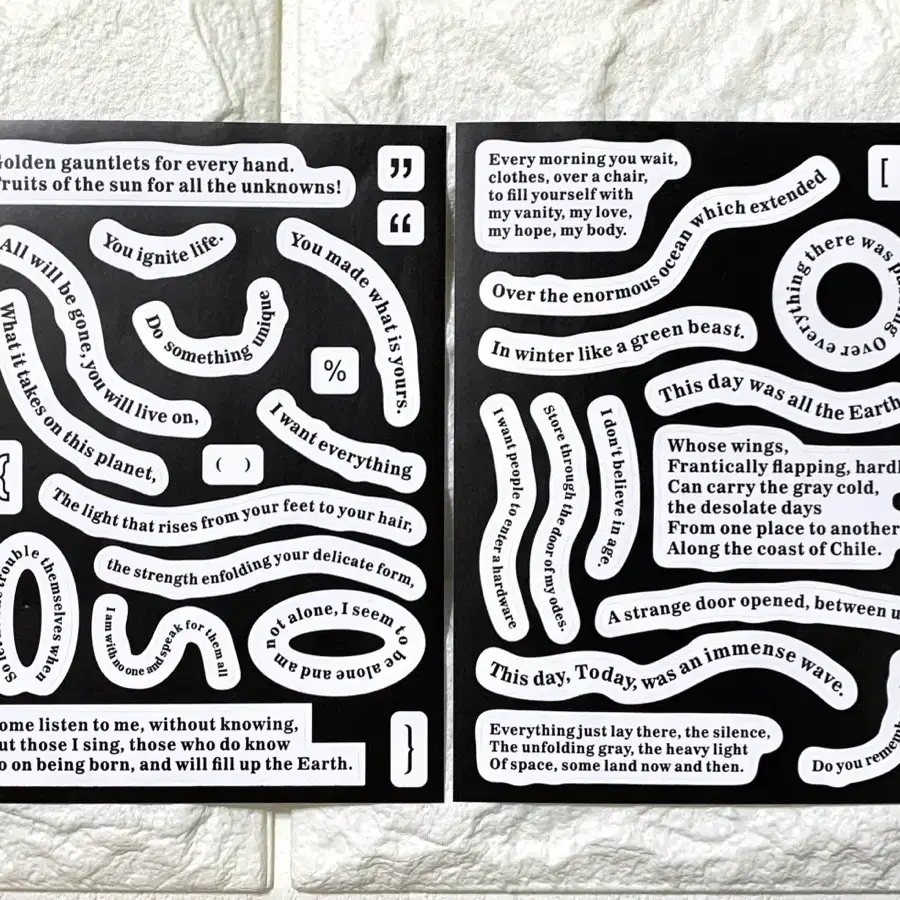 olden gauntlets for every hand.
ruits of the sun for all the unknowns!
”
“
All will be gone, you will live on,
You ignite life.
You made what is yours.
What it takes on this planet,
Do something unique
%
I want everything
( )
{
The light that rises from your feet to your hair,
the strength enfolding your delicate form,
trouble themselves when
I am with no one and speak for them all
not alone, I seem to be alone and am
ome listen to me, without knowing,
ut those I sing, those who do know
o on being born, and will fill up the Earth.
}
Every morning you wait,
clothes, over a chair,
to fill yourself with
my vanity, my love,
my hope, my body.
[
Over the enormous ocean which extended
Over everything there was
In winter like a green beast.
This day was all the Earth
I want people to enter a hardware
Store through the door of my odes.
I don't believe in age.
Whose wings,
Frantically flapping, hardl
Can carry the gray cold,
the desolate days
From one place to another
Along the coast of Chile.
A strange door opened, between u
This day, Today, was an immense wave.
Everything just lay there, the silence,
The unfolding gray, the heavy light
Of space, some land now and then.
Do you rememb